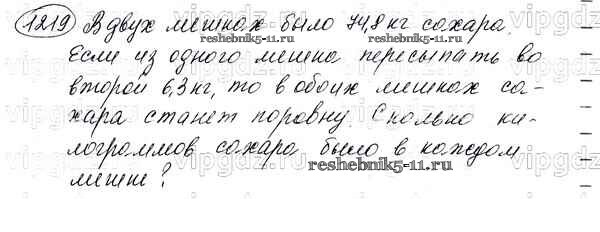 1219 В двух мешках было 74,8 кг сахара.
Если из одного мешка пересыпать во
второй 6,3 кг, то в обоих мешках са-
хара станет поровну. Сколько ки-
лограммов сахара было в каждом
мешке?
www.reshebnik5-11.ru
www.reshebnik5-11.ru